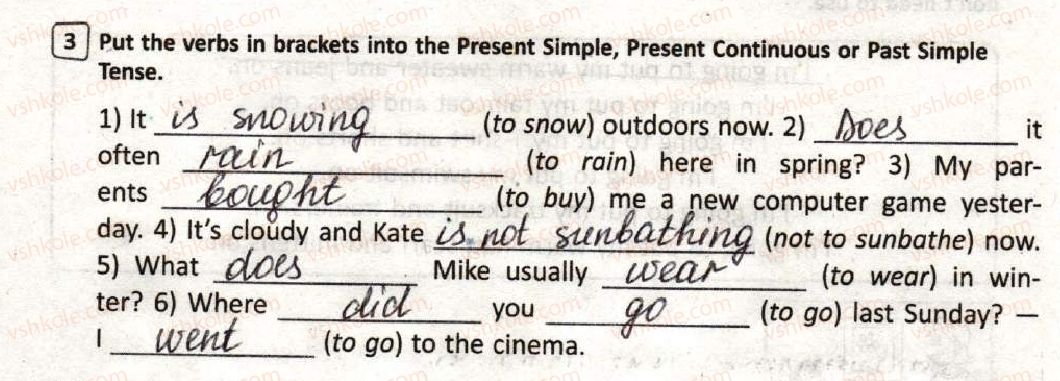 3 Put the verbs in brackets into the Present Simple, Present Continuous or Past Simple
Tense.
1) It is snowing (to snow) outdoors now. 2) Does it
often rain (to rain) here in spring? 3) My par-
ents bought (to buy) me a new computer game yester-
day. 4) It's cloudy and Kate is not sunbathing (not to sunbathe) now.
5) What does Mike usually wear (to wear) in win-
ter? 6) Where did you go (to go) last Sunday? —
I went (to go) to the cinema.